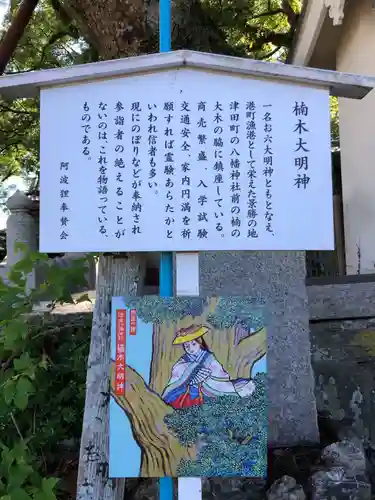 楠木大明神
一名お六大明神ともとなえ、
港町漁港として栄えた景勝の地
津田町の八幡神社前の楠の
大木の脇に鎮座している。
商売繁盛、入学試験
交通安全、家内円満を祈
願すれば霊験あらたかと
いわれ信者も多い。
現にのぼりなどが奉納され
参詣者の絶えることが
ないのは、これを物語っている、
ものである。
阿波狸奉賛会
楠木大明神